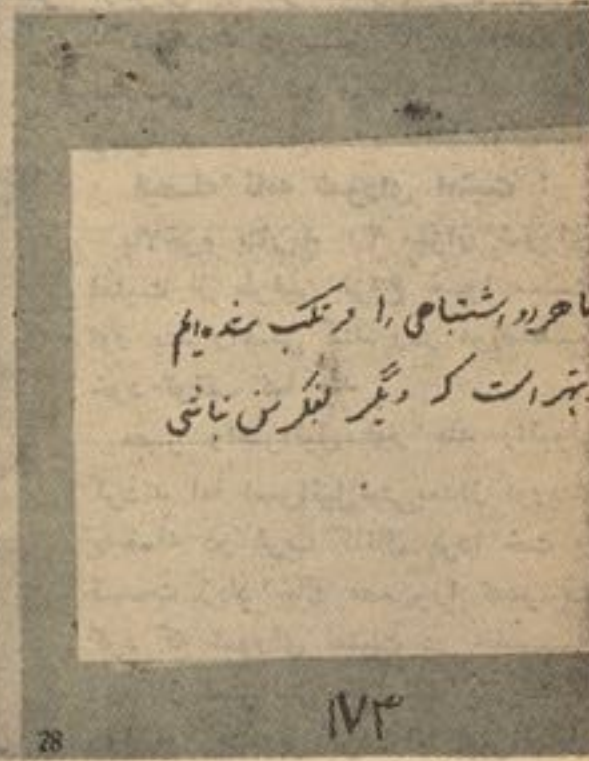 ما هردو اشتباهی را مرتکب شده‌ایم
بهتر است که دیگر بفکر من نباشی
۱۷۳
28